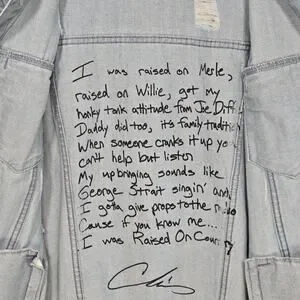 I was raised on Merle,
raised on Willie, got my
honky tonk attitude from Joe Diff
Daddy did too, it's family tradition
When someone cranks it up yo
can't help but listen
My upbringing sounds like
George Strait singin' and
I gotta give props to the radio
Cause if you know me...
I was Raised On Country